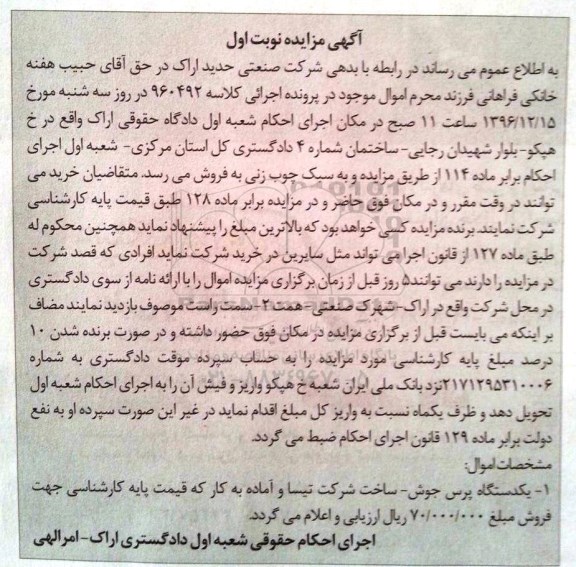 آگهی مزایده نوبت اول
به اطلاع عموم می رساند در رابطه با بدهی شرکت صنعتی حدید اراک در حق آقای حبیب هفته
خانکی فراهانی فرزند محرم اموال موجود در پرونده اجرائی کلاسه ۹۶۰۴۹۲ در روز سه شنبه مورخ
۱۳۹۶/۱۲/۱۵ ساعت ۱۱ صبح در مکان اجرای احکام شعبه اول دادگاه حقوقی اراک واقع در خ
هپکو- بلوار شهیدان رجایی- ساختمان شماره ۴ دادگستری کل استان مرکزی- شعبه اول اجرای
احکام برابر ماده ۱۱۴ از طریق مزایده و به سبک چوب زنی به فروش می رسد. متقاضیان خرید می
توانند در وقت مقرر و در مکان فوق حاضر و در مزایده برابر ماده ۱۲۸ طبق قیمت پایه کارشناسی
شرکت نمایند. برنده مزایده کسی خواهد بود که بالاترین مبلغ را پیشنهاد نماید همچنین محکوم له
طبق ماده ۱۲۷ از قانون اجرا می تواند مثل سایرین در خرید شرکت نماید افرادی که قصد شرکت
در مزایده را دارند می توانند ۵ روز قبل از زمان برگزاری مزایده اموال را با ارائه نامه از سوی دادگستری
در محل شرکت واقع در اراک- شهرک صنعتی- همت ۲- سمت راست موصوف بازدید نمایند مضاف
بر اینکه می بایست قبل از برگزاری مزایده در مکان فوق حضور داشته و در صورت برنده شدن ۱۰
درصد مبلغ پایه کارشناسی مورد مزایده را به حساب سپرده موقت دادگستری به شماره
۲۱۷۱۲۹۵۳۱۰۰۰۶ نزد بانک ملی ایران شعبه خ هپکو واریز و فیش آن را به اجرای احکام شعبه اول
تحویل دهد و ظرف یکماه نسبت به واریز کل مبلغ اقدام نماید در غیر این صورت سپرده او به نفع
دولت برابر ماده ۱۲۹ قانون اجرای احکام ضبط می گردد.
مشخصات اموال:
۱- یکدستگاه پرس جوش- ساخت شرکت تیسا و آماده به کار که قیمت پایه کارشناسی جهت
فروش مبلغ ۷۰/۰۰۰/۰۰۰ ریال ارزیابی و اعلام می گردد.
اجرای احکام حقوقی شعبه اول دادگستری اراک- امرالهی